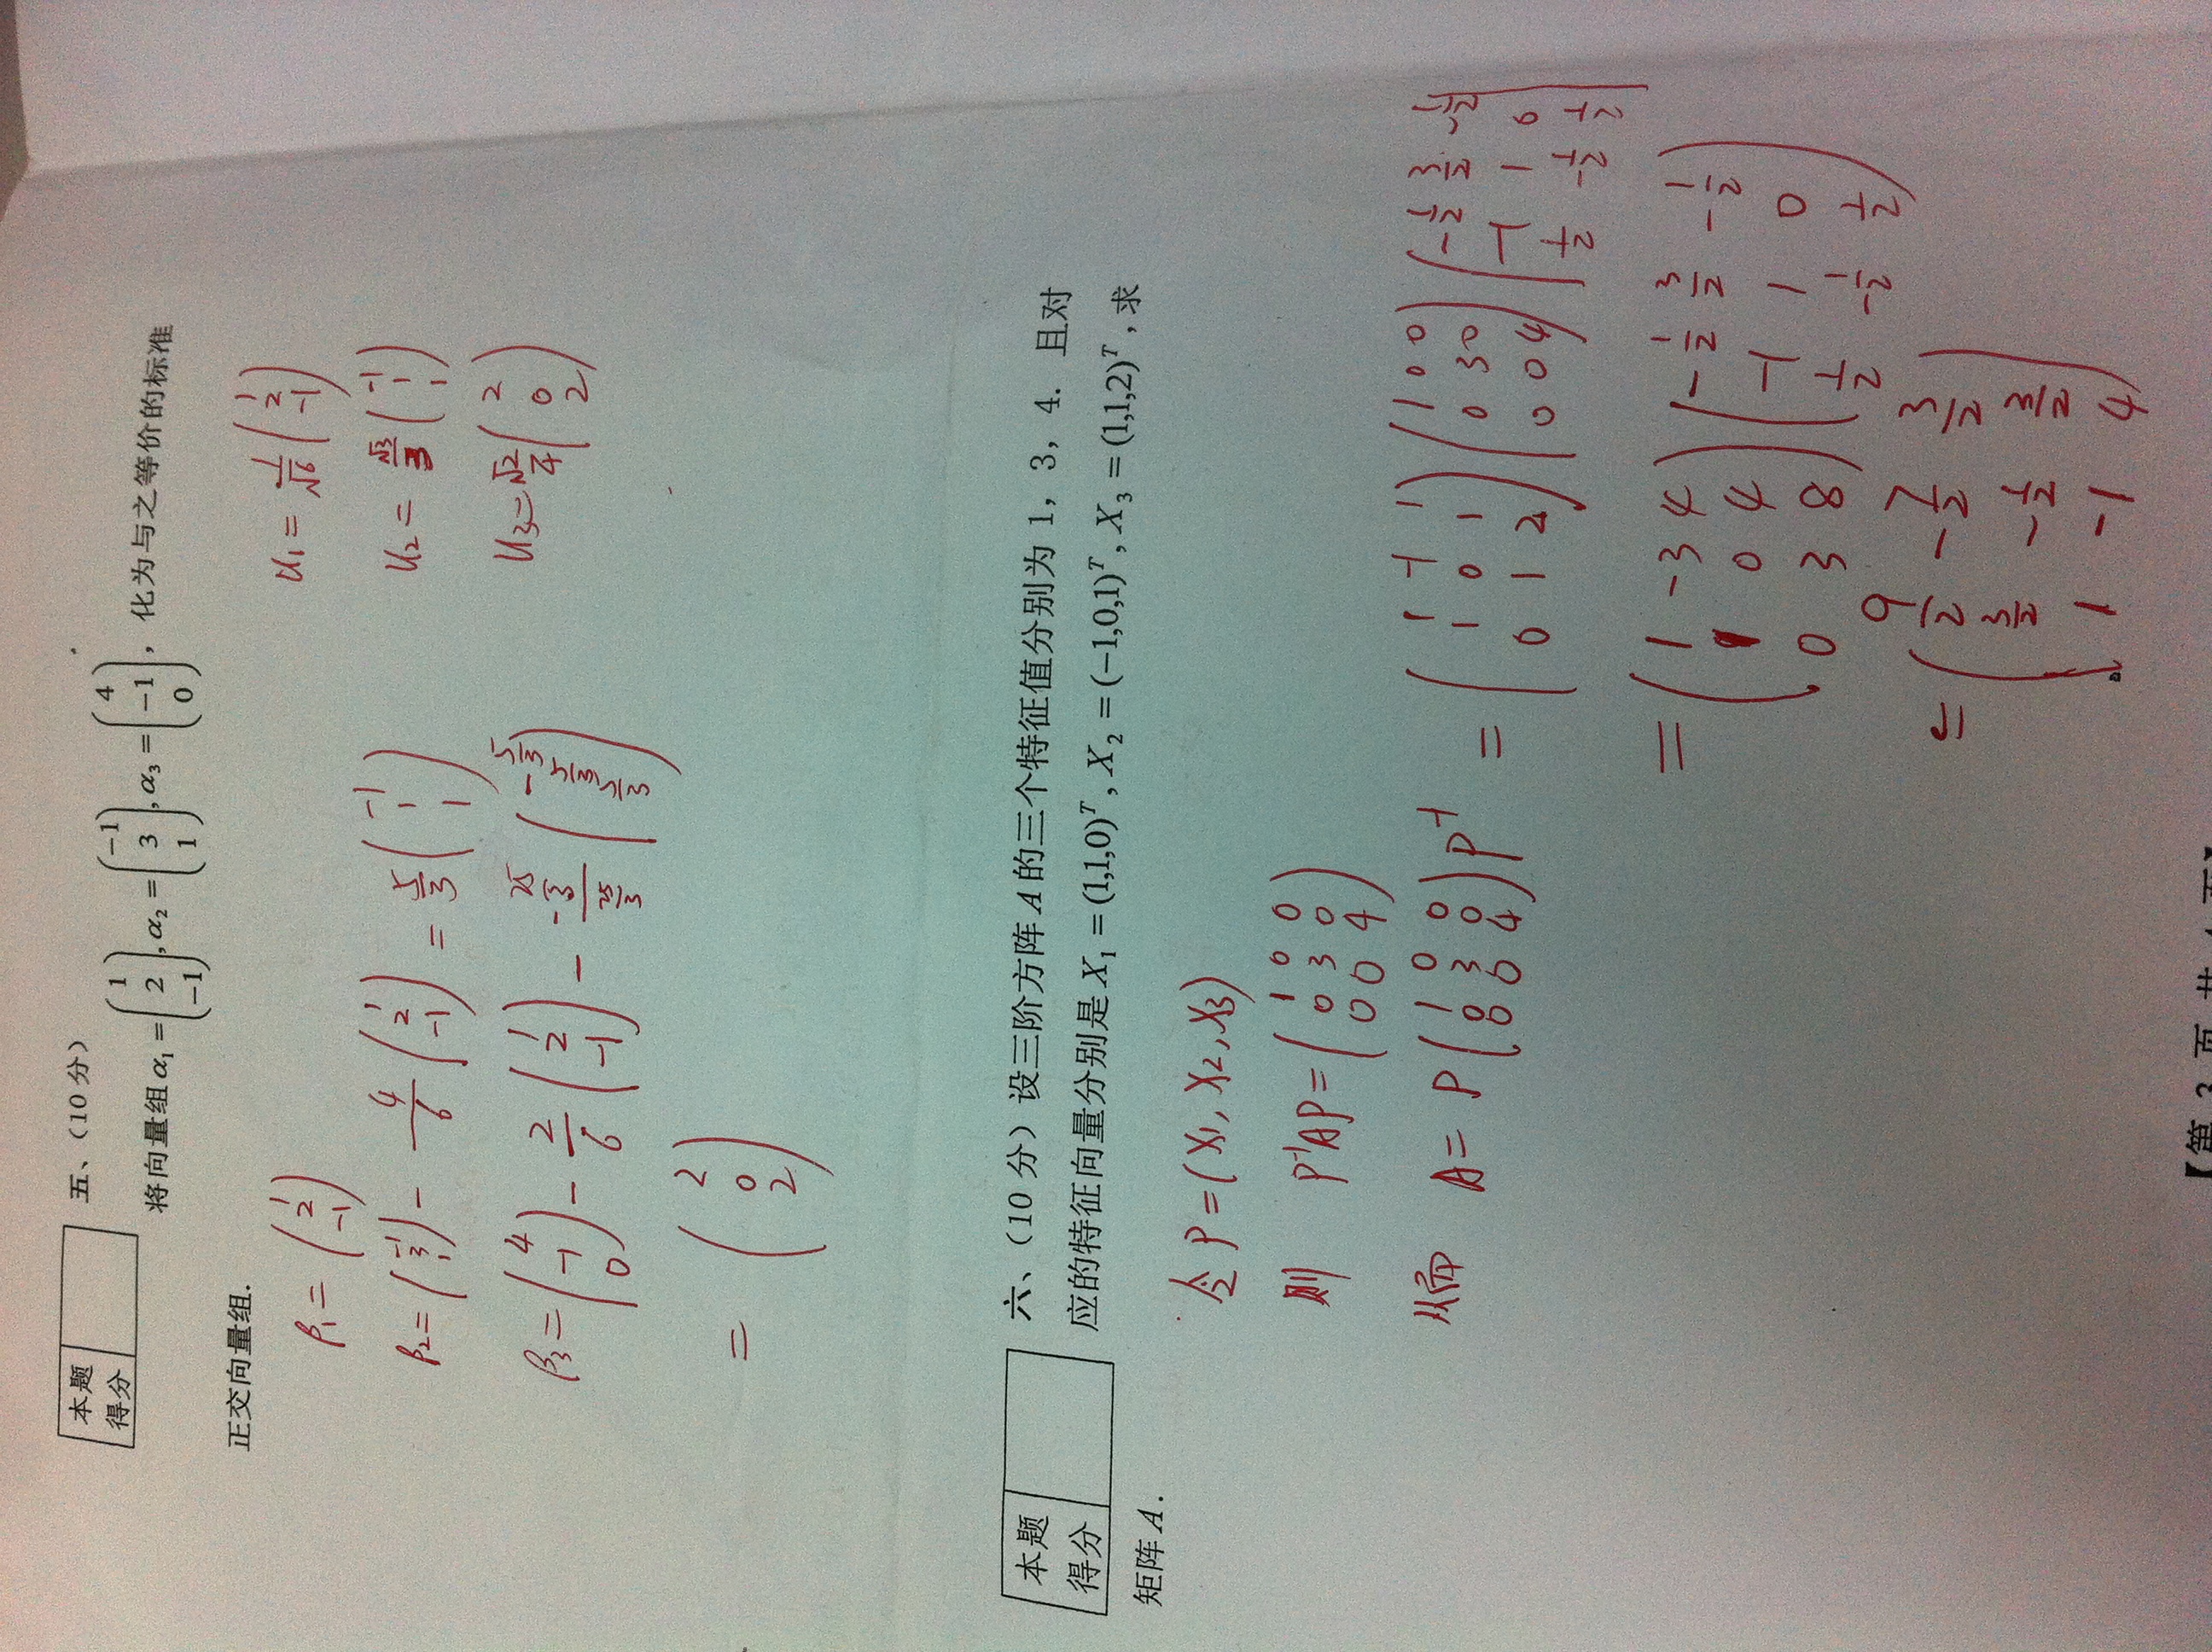 本题
得分
五、(10 分)
将向量组 α₁ = (1 2 −1), α₂ = (−1 3 1), α₃ = (4 −1 0), 化为与之等价的标准
正交向量组.
β₁ = (1 2 −1)
u₁ = 1/√6 (1 2 −1)
β₂ = (−1 3 1) − 4/6 (1 2 −1) = 5/3 (−1 1 1)
u₂ = √3/3 (−1 1 1)
β₃ = (4 −1 0) − 2/6 (1 2 −1) − (−25/3)/(25/3) (−5/3 5/3 5/3)
u₃ = √2/4 (2 0 2)
= (2 0 2)
本题
得分
六、(10 分) 设三阶方阵 A 的三个特征值分别为 1, 3, 4. 且对
应的特征向量分别是 X₁ = (1,1,0)ᵀ, X₂ = (−1,0,1)ᵀ, X₃ = (1,1,2)ᵀ, 求
矩阵 A.
令 P = (X₁, X₂, X₃)
则 P⁻¹AP = (1 0 0
0 3 0
0 0 4)
从而 A = P (1 0 0
0 3 0
0 0 4) P⁻¹ = (1 −1 1
1 0 1
0 1 2) (1 0 0
0 3 0
0 0 4) (−1/2 3/2 −1/2
−1 1 0
1/2 −1/2 1/2)
= (1 −3 4
1 0 4
0 3 8) (−1/2 3/2 −1/2
−1 1 0
1/2 −1/2 1/2)
= (9/2 −7/2 3/2
3/2 −1/2 3/2
1 −1 4)
【第 3 页 共 4 页】